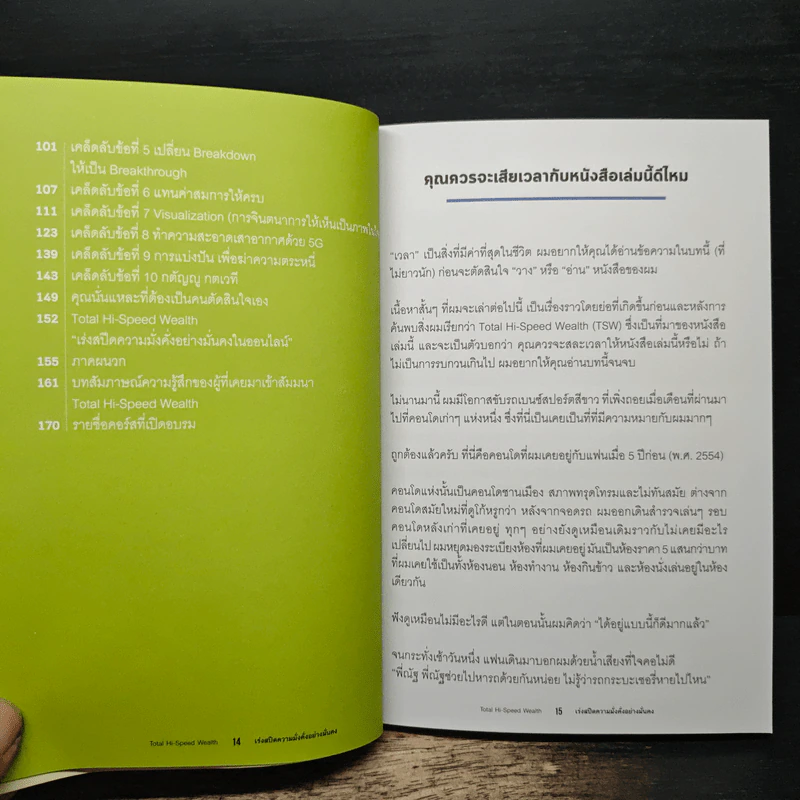 101 เคล็ดลับข้อที่ 5 เปลี่ยน Breakdown
ให้เป็น Breakthrough
107 เคล็ดลับข้อที่ 6 แทนค่าสมการให้ครบ
111 เคล็ดลับข้อที่ 7 Visualization (การจินตนาการให้เห็นเป็นภาพในใจ
123 เคล็ดลับข้อที่ 8 ทำความสะอาดเสาอากาศด้วย 5G
139 เคล็ดลับข้อที่ 9 การแบ่งปัน เพื่อฆ่าความตระหนี่
143 เคล็ดลับข้อที่ 10 กตัญญู กตเวที
149 คุณนั่นแหละที่ต้องเป็นคนตัดสินใจเอง
152 Total Hi-Speed Wealth
“เร่งสปีดความมั่งคั่งอย่างมั่นคงในออนไลน์”
155 ภาคผนวก
161 บทสัมภาษณ์ความรู้สึกของผู้ที่เคยมาเข้าสัมมนา
Total Hi-Speed Wealth
170 รายชื่อคอร์สที่เปิดอบรม
Total Hi-Speed Wealth 14 เร่งสปีดความมั่งคั่งอย่างมั่นคง
คุณควรจะเสียเวลากับหนังสือเล่มนี้ดีไหม
“เวลา” เป็นสิ่งที่มีค่าที่สุดในชีวิต ผมอยากให้คุณได้อ่านข้อความในบทนี้ (ที่
ไม่ยาวนัก) ก่อนจะตัดสินใจ “วาง” หรือ “อ่าน” หนังสือของผม
เนื้อหาสั้นๆ ที่ผมจะเล่าต่อไปนี้ เป็นเรื่องราวโดยย่อที่เกิดขึ้นก่อนและหลังการ
ค้นพบสิ่งผมเรียกว่า Total Hi-Speed Wealth (TSW) ซึ่งเป็นที่มาของหนังสือ
เล่มนี้ และจะเป็นตัวบอกว่า คุณควรจะสละเวลาให้หนังสือเล่มนี้หรือไม่ ถ้า
ไม่เป็นการรบกวนเกินไป ผมอยากให้คุณอ่านบทนี้จนจบ
ไม่นานมานี้ ผมมีโอกาสขับรถเบนซ์สปอร์ตสีขาว ที่เพิ่งถอยเมื่อเดือนที่ผ่านมา
ไปที่คอนโดเก่าๆ แห่งหนึ่ง ซึ่งที่นี่เคยเป็นที่ที่มีความหมายกับผมมากๆ
ถูกต้องแล้วครับ ที่นี่คือคอนโดที่ผมเคยอยู่กับแฟนเมื่อ 5 ปีก่อน (พ.ศ. 2554)
คอนโดแห่งนั้นเป็นคอนโดชานเมือง สภาพทรุดโทรมและไม่ทันสมัย ต่างจาก
คอนโดสมัยใหม่ที่ดูโก้หรูกว่า หลังจากจอดรถ ผมออกเดินสำรวจเล่นๆ รอบ
คอนโดหลังเก่าที่เคยอยู่ ทุกๆ อย่างยังดูเหมือนเดิมราวกับไม่เคยมีอะไร
เปลี่ยนไป ผมหยุดมองระเบียงห้องที่ผมเคยอยู่ มันเป็นห้องราคา 5 แสนกว่าบาท
ที่ผมเคยใช้เป็นทั้งห้องนอน ห้องทำงาน ห้องกินข้าว และห้องนั่งเล่นอยู่ในห้อง
เดียวกัน
ฟังดูเหมือนไม่มีอะไรดี แต่ในตอนนั้นผมคิดว่า “ได้อยู่แบบนี้ก็ดีมากแล้ว”
จนกระทั่งเช้าวันหนึ่ง แฟนเดินมาบอกผมด้วยน้ำเสียงที่ใจคอไม่ดี
“พี่ณัฐ พี่ณัฐช่วยไปหารถด้วยกันหน่อย ไม่รู้ว่ารถกระบะเชอรี่หายไปไหน”
Total Hi-Speed Wealth 15 เร่งสปีดความมั่งคั่งอย่างมั่นคง